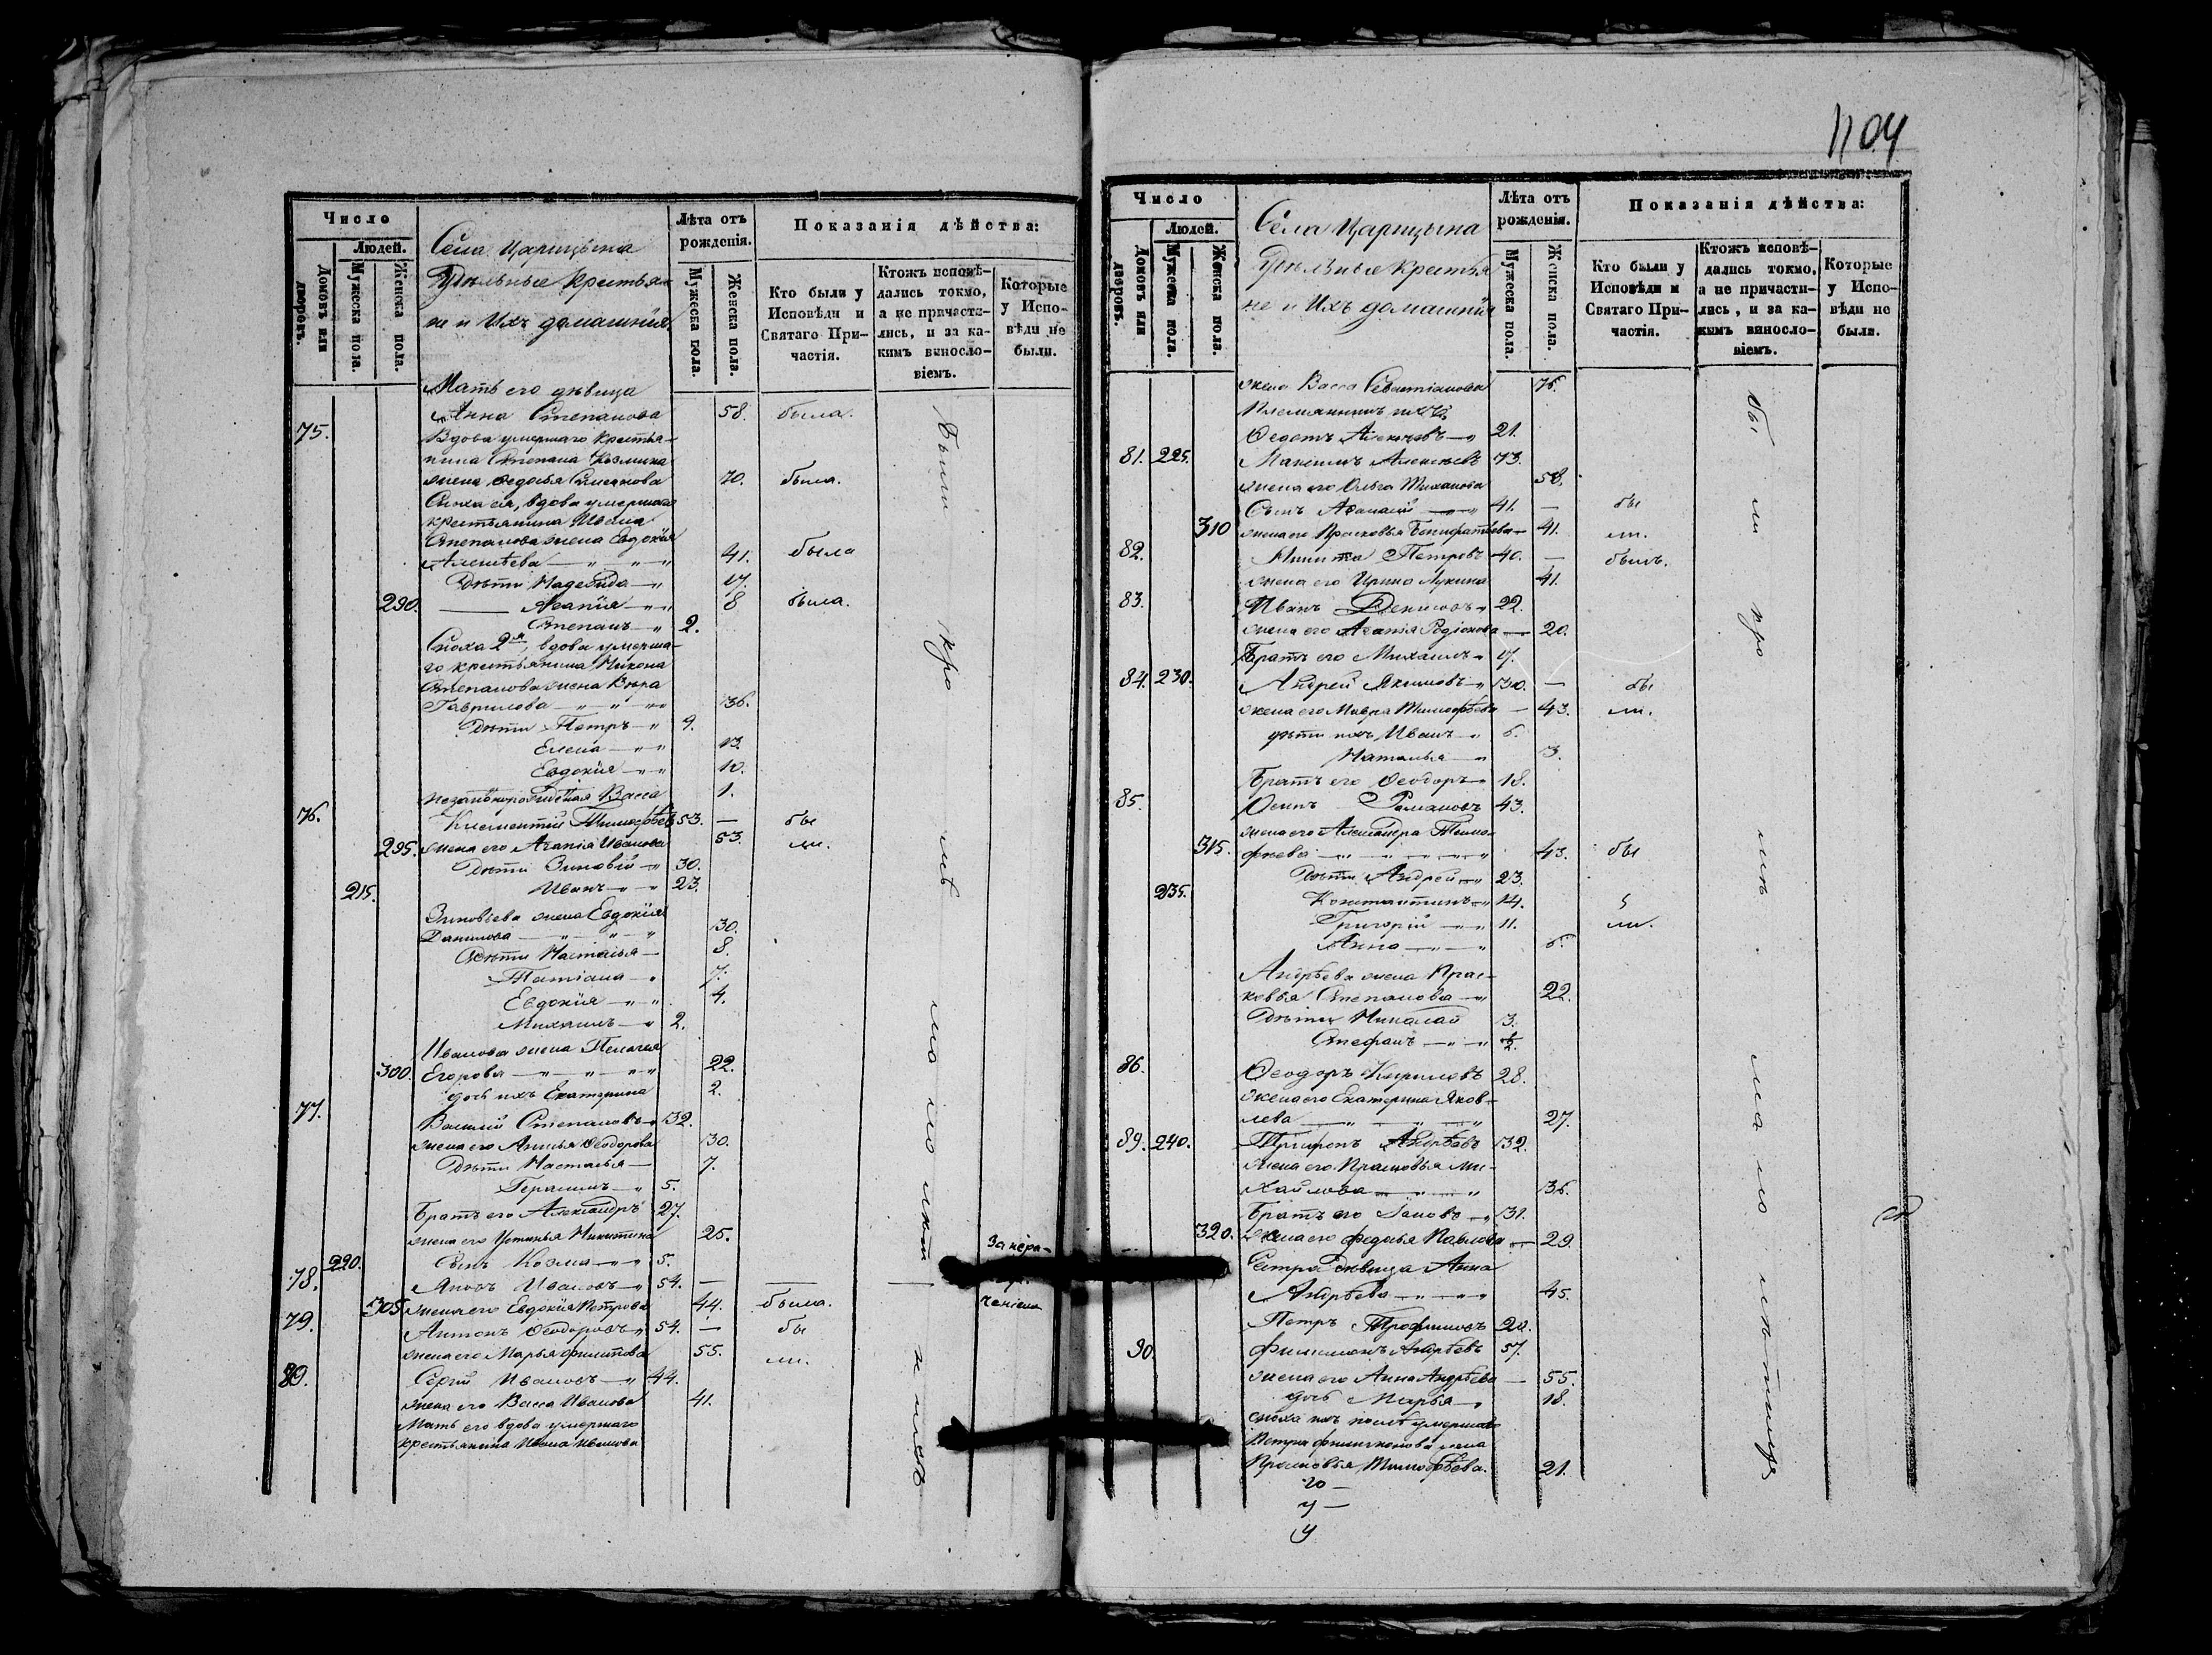 1104
Число
Людей.
Домовъ или дворовъ.
Мужеска пола.
Женска пола.
Села Царицына
Удѣльные крестья-
не и Ихъ домашнія
Лѣта отъ рожденія.
Мужеска пола.
Женска пола.
Показанія дѣйства:
Кто были у Исповѣди и Святаго При-частія.
Ктожъ исповѣ-дались токмо, а не причасти-лись, и за ка-кимъ винослo-віемъ.
Которые у Испо-вѣди не были.
Мать его дѣвица
Анна Степанова 58. была.
75. Вдова умершаго крестья-
нина Степана Козмина
жена Ѳедосья 70. была.
Сноха ея, вдова умершаго
крестьянина Ивана
Степанова жена Евдокія
Алексѣева 41. была
Дѣти Надежда 17.
290. Агапія 8 была.
Степанъ 2.
Сноха 2я, вдова умерша-
го крестьянина Никона
Степанова жена Вѣра
Гаврилова 36.
Дѣти Петръ 9.
Елена 13.
Евдокія 10.
незаконнорожденная Васса 1.
76. Климентій Тимоѳеевъ 53. — бы
295. жена его Агапія Иванова 53. ли.
Дѣти Зиновій 30.
215. Иванъ 23.
Зиновіева жена Евдокія
Данилова 30.
Дѣти Настасья 8.
Татіана 7.
Евдокія 4.
Михаилъ 2.
Иванова жена Пелагея
300. Егорова 22.
дочь ихъ Екатерина 2.
77. Василій Степановъ 32.
жена его Анисья Ѳеодорова 30.
Дѣти Настасья 7.
Герасимъ 5.
Братъ его Александръ 27.
жена его Устинья Никитина 25.
220. Сынъ Козма 5.
78. Яковъ Ивановъ 54. —
305. жена его Евдокія Петрова 44. была.
79. Антонъ Ѳеодоровъ 54. — бы
жена его Марья Филипова 55. ли.
80. Сергій Ивановъ 44.
жена его Васса Иванова 41.
Мать его вдова умершаго
крестьянина Ивана Иванова
Были кро мѣ ма ло лѣт
Число
Людей.
Домовъ или дворовъ.
Мужеска пола.
Женска пола.
Села Царицына
Удѣльные крестья
не и Ихъ домашнія
Лѣта отъ рожденія.
Мужеска пола.
Женска пола.
Показанія дѣйства:
Кто были у Исповѣди и Святаго При-частія.
Ктожъ исповѣ-дались токмо, а не причасти-лись, и за ка-кимъ винослo-віемъ.
Которые у Испо-вѣди не были.
жена Васса Севастіанова 75.
Племянникъ
Ѳедотъ Алексѣевъ 21.
81. 225. Максимъ Алексѣевъ 73.
жена его Ольга 58.
Сынъ Аѳанасій 41. — бы
310 жена его Прасковья Бонифатьева 41. ли.
82. Никита Петровъ 40. — былъ.
жена его Ирина Лукина 41.
83. Иванъ Денисовъ 22.
жена его Агапія Родіонова 20.
Братъ его Михаилъ 17.
84. 230. Андрей Якимовъ 50. — бы
жена его Мавра Тимоѳеева 43. ли.
дѣти ихъ Иванъ 6.
Наталья 3.
Братъ его Ѳеодоръ 18.
85. Осипъ Романовъ 43.
жена его Александра Тимо-
315. фѣева 43. бы
Дѣти Андрей 23.
235. Константинъ 14.
Григорій 11. ли.
Анна 6.
Андрѣева жена Прас-
ковья Степанова 22.
Дѣти Николай 3.
Стефанъ ½.
86. Ѳеодоръ Кириловъ 28.
жена его Екатерина Яков-
лева 27.
89. 240. Трифонъ Андрѣевъ 32.
жена его Прасковья Ми-
хайлова 36.
Братъ его 31.
320. жена его Ѳедосья Павлова 29.
Сестра дѣвица Анна
Андрѣева 45.
Петръ Трофимовъ 20.
90. Филимонъ Андрѣевъ 57.
жена его Анна Андрѣева 55.
дочь Марья 18.
сноха ихъ послѣ умершаго
Петра Филимонова жена
Прасковья Тимоѳѣева. 21.
Бы ли кро мѣ ма ло